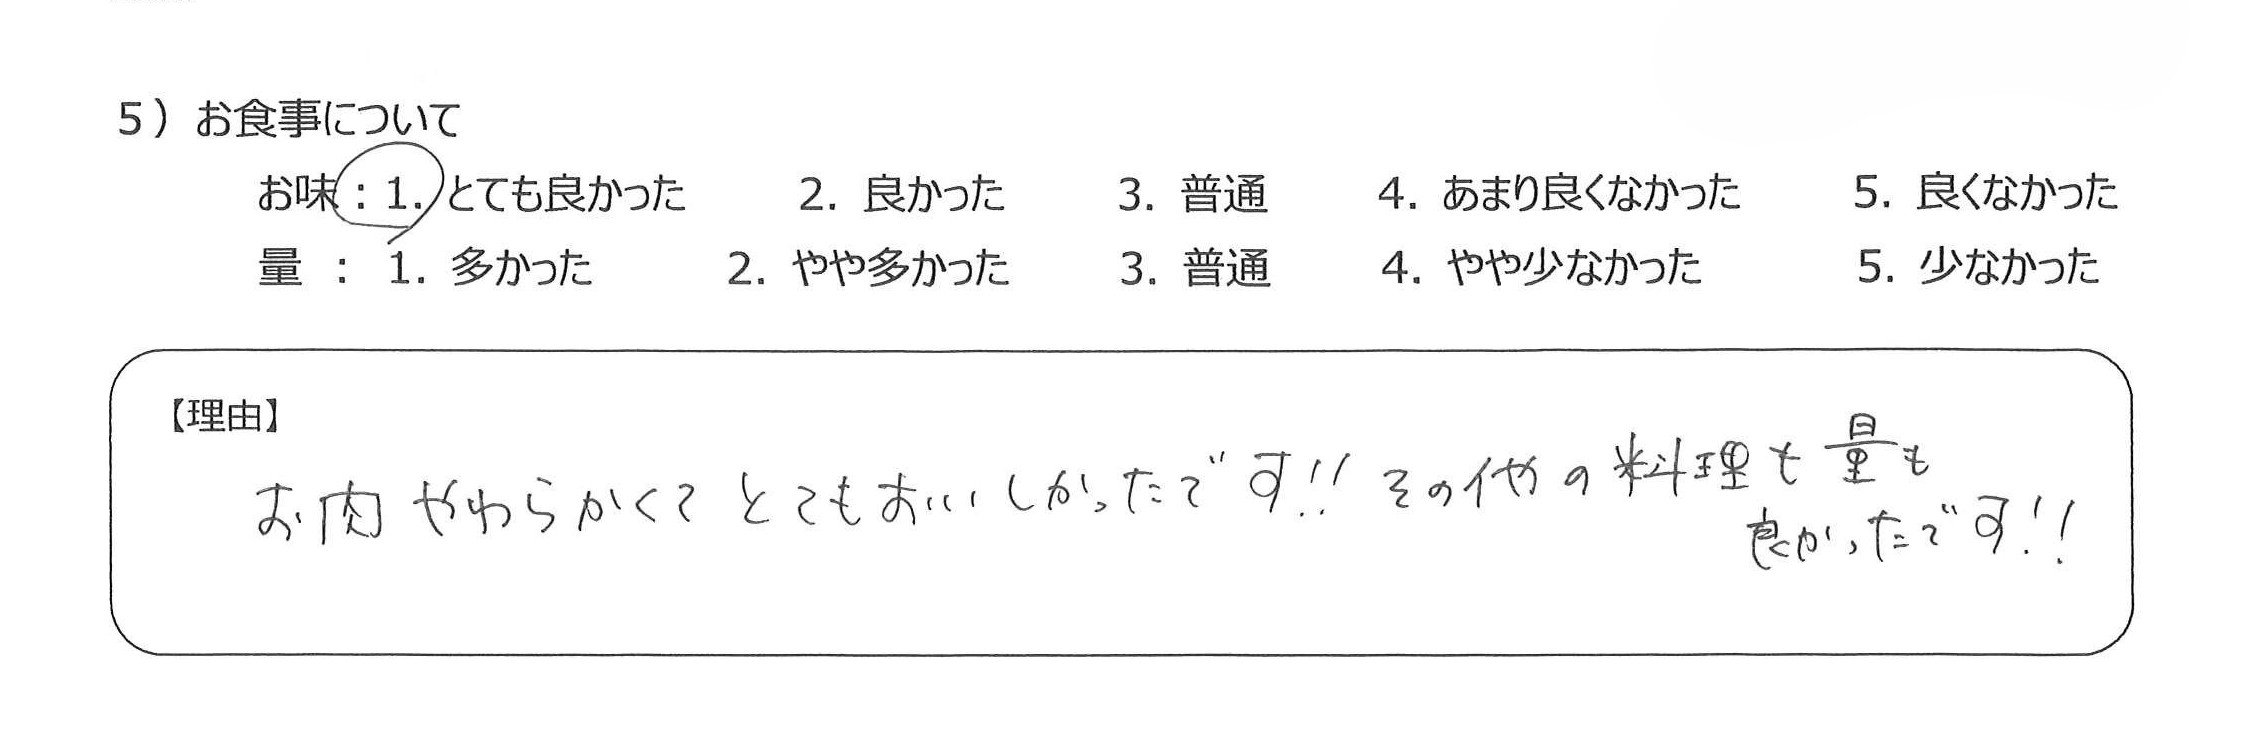 5）お食事について
お味：1. とても良かった 2. 良かった 3. 普通 4. あまり良くなかった 5. 良くなかった
量 ： 1. 多かった 2. やや多かった 3. 普通 4. やや少なかった 5. 少なかった
【理由】
お肉やわらかくてとてもおいしかったです!! その他の料理も量も
良かったです!!